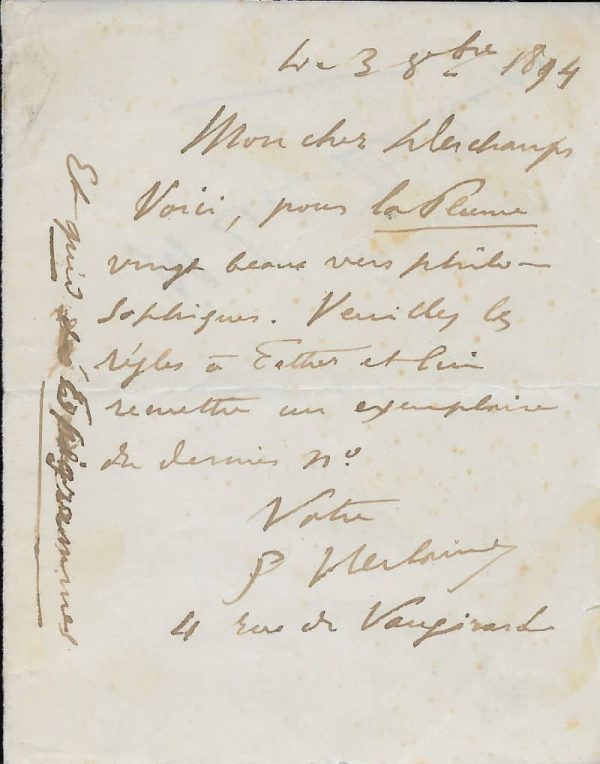 Le 3 8bre 1894
Mon cher Deschamps
Voici, pour la Plume
vingt beaux vers philo-
sophiques. Veuillez les
régler à Esther et lui
remettre un exemplaire
du dernier no.
Votre
P Verlaine
4 rue de Vaugirard
Et quid des Épigrammes